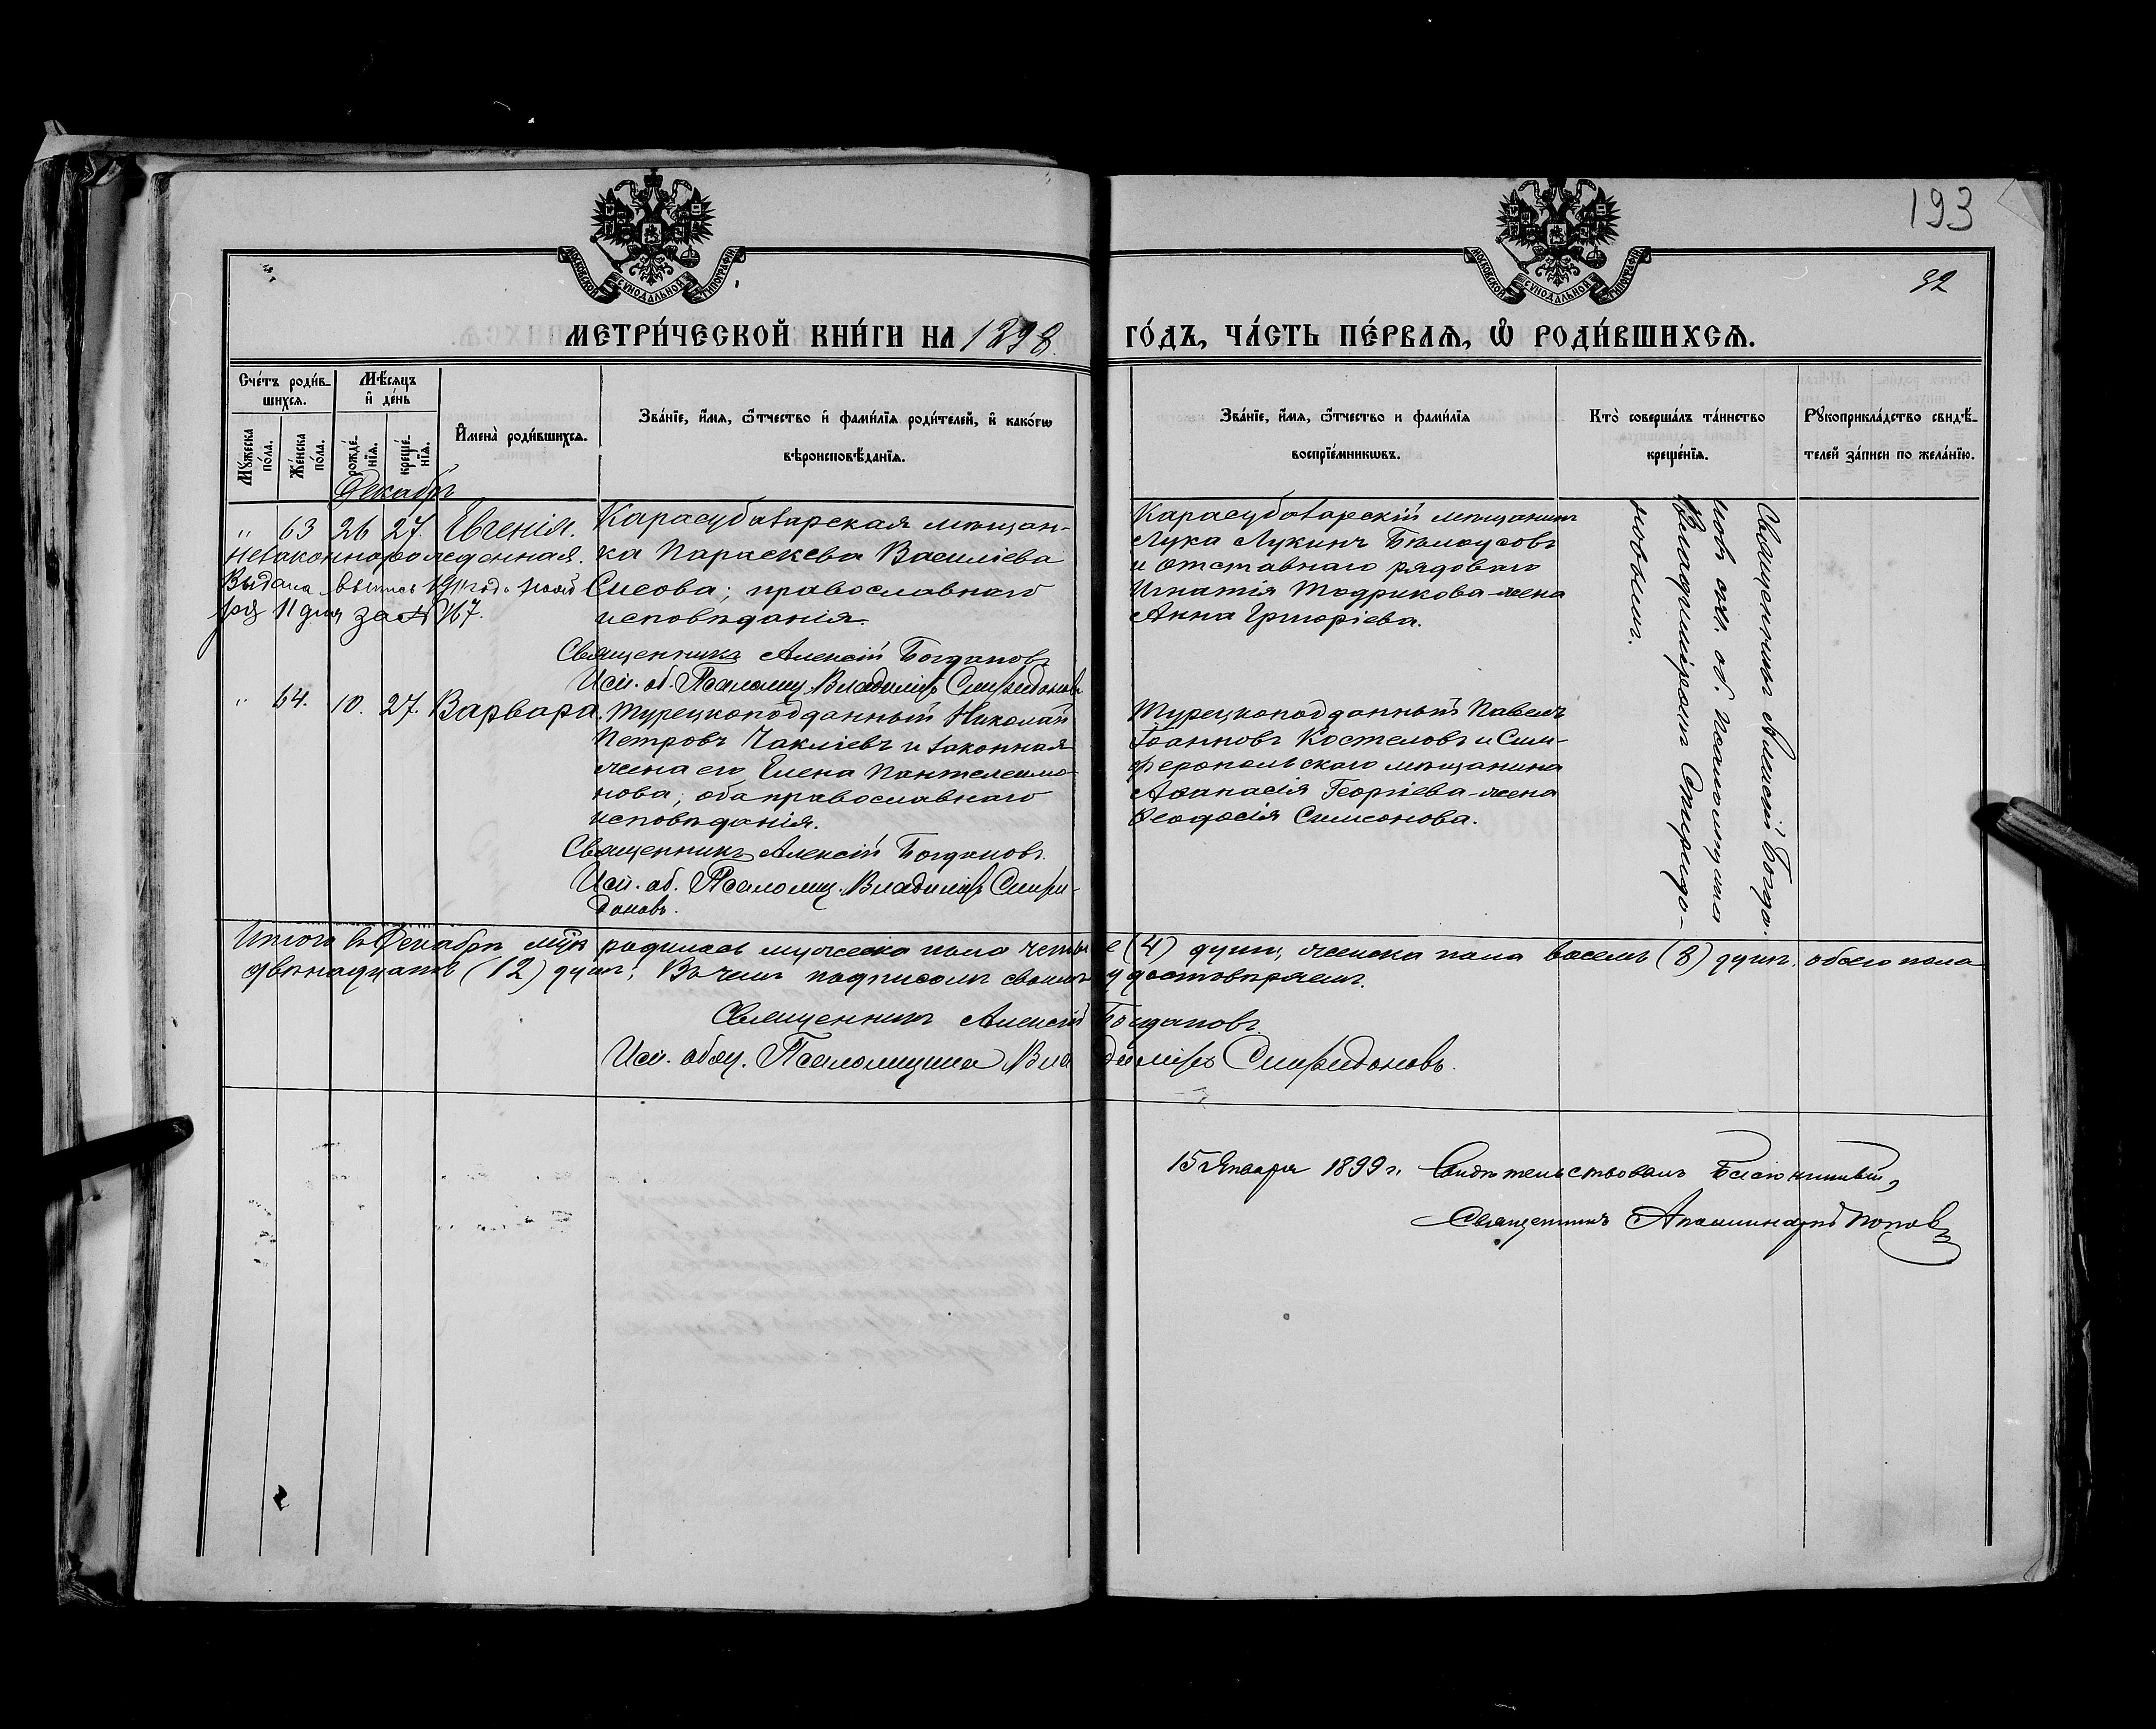 193
МОСКОВСКОЙ СѴНОДАЛЬНОЙ ТИПОГРАФІИ
МОСКОВСКОЙ СѴНОДАЛЬНОЙ ТИПОГРАФІИ
92
МЕТРИ́ЧЕСКОЙ КНИ́ГИ НА 1898. ГО́ДЪ, ЧА́СТЬ ПЕ́РВАѦ, Ѡ҆ РОДИ́ВШИХСѦ.
Сче́тъ роди́в-
шихсѧ.
Мѣ́сѧцъ
и҆ де́нь
Мꙋ́жеска по́ла.
Же́нска по́ла.
рожде́-
нїѧ.
креще́-
нїѧ.
И҆мена̀ роди́вшихсѧ.
Зва́нїе, и҆́мѧ, ѻ҆́тчество и҆ фами́лїѧ роди́телей, и҆ како́гѡ
вѣроисповѣ́данїѧ.
Зва́нїе, и҆́мѧ, ѻ҆́тчество и фами́лїѧ
воспрїе́мникѡвъ.
Кто̀ соверша́лъ та́инство
креще́нїѧ.
Рꙋкоприкла́дство свидѣ́-
телей за́писи по жела́нїю.
Декабрь
" 63 26 27. Евгенія.
Незаконнорожденная.
Выдана выпись 1911 года
11 дня за № 167.
Карасубазарская мѣщан-
ка Параскева Василіева
Сисова; православнаго
исповѣданія.
Священникъ Алексій Богдановъ
Исп. об. Псаломщ. Владиміръ Спиридоновъ
Карасубазарскій мѣщанинъ
Лука Лукинъ Бѣлоусовъ
и отставнаго рядоваго
Игнатія Тодрикова жена
Анна Григоріева.
Священникъ Алексій Богда-
новъ съ исп. об. псаломщика
Владиміромъ Спиридо-
новымъ.
" 64. 10. 27. Варвара.
Турецкоподданный Николай
Петровъ Чакліевъ и законная
жена его, Елена Пантелеимо-
нова; оба православнаго
исповѣданія.
Священникъ Алексій Богдановъ.
Исп. об. Псаломщ. Владиміръ Спири-
доновъ.
Турецкоподданный Павелъ
Іоанновъ Костеловъ и Сим-
феропольскаго мѣщанина
Аѳанасія Георгіева жена
Ѳеодосія Симеонова.
Итого въ Декабрѣ мцѣ родилось мужеска пола четыре (4) души, женска пола восемь (8) душъ, обоего пола
двѣнадцать (12) душъ; Въ чемъ подписомъ своимъ удостовѣряемъ.
Священникъ Алексій Богдановъ.
Исп. обяз. Псаломщика Владиміръ Спиридоновъ.
15 Января 1899 г. Свидѣтельствовалъ Благочинный,
Священникъ Аполлинарій Поповъ